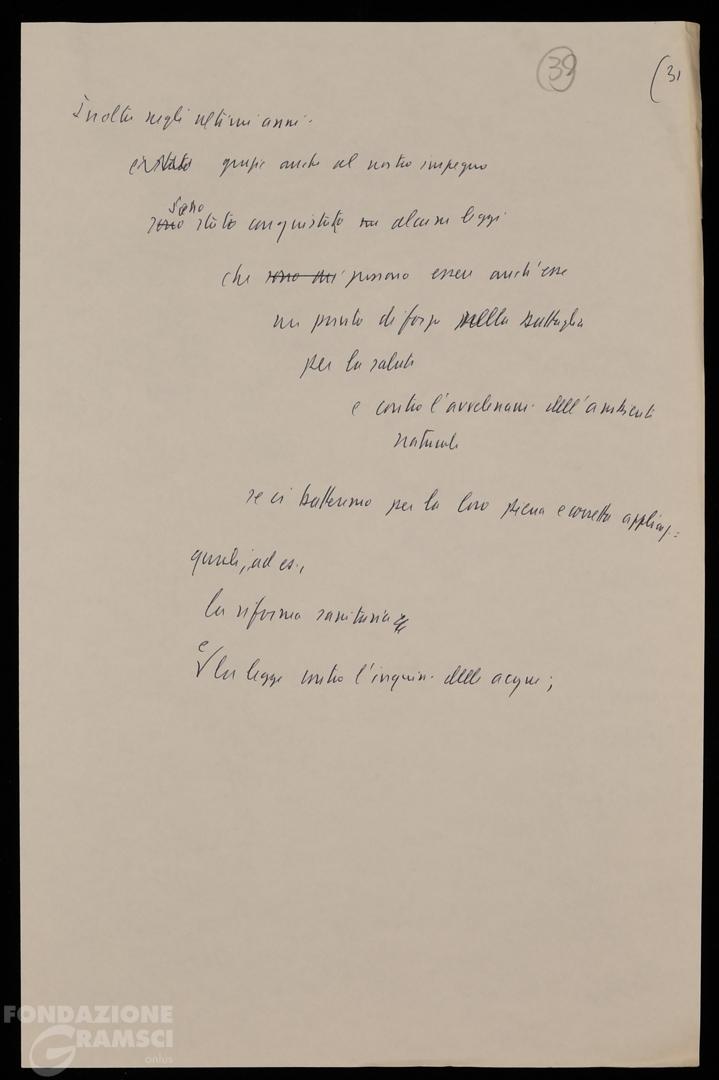 39
(31
Inoltre negli ultimi anni.
grazie anche al nostro impegno
sono
sono state conquistate alcune leggi
che sono possono essere anch'esse
un punto di forza nella battaglia
per la salute
e contro l'avvelenam. dell'ambiente
naturale
se ci batteremo per la loro piena e corretta applicaz.
quali, ad es.,
la riforma sanitaria
e
la legge contro l'inquin. delle acque;
FONDAZIONE
GRAMSCI
onlus